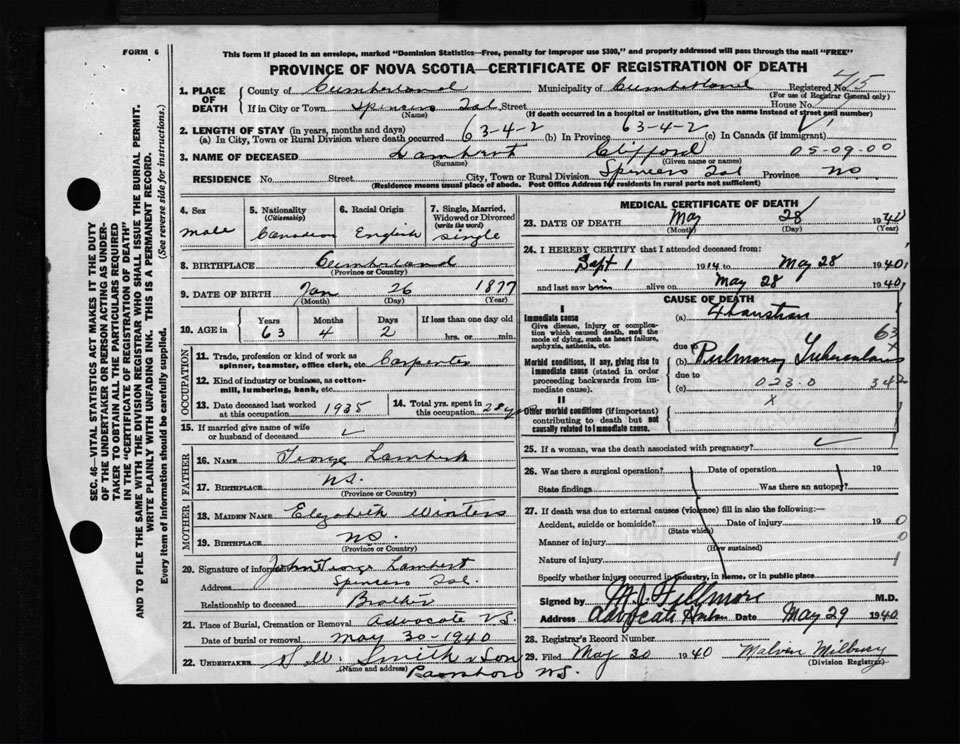 FORM 6
This form if placed in an envelope, marked "Dominion Statistics—Free, penalty for improper use $300," and properly addressed will pass through the mail "FREE"
PROVINCE OF NOVA SCOTIA—CERTIFICATE OF REGISTRATION OF DEATH
1. PLACE OF DEATH
County of Cumberland Municipality of Cumberland Registered No. 715
(For use of Registrar General only)
If in City or Town Spencers Isl Street House No.
(Name) (If death occurred in a hospital or institution, give the name instead of street and number)
2. LENGTH OF STAY (in years, months and days)
(a) In City, Town or Rural Division where death occurred 63-4-2 (b) In Province 63-4-2 (c) In Canada (if immigrant)
3. NAME OF DECEASED Lambert Clifford 05-09-00
(Surname) (Given name or names)
RESIDENCE No. Street City, Town or Rural Division Spencers Isl Province NS
(Residence means usual place of abode. Post Office Address for residents in rural parts not sufficient)
4. Sex
male
5. Nationality
(Citizenship)
Canadian
6. Racial Origin
English
7. Single, Married, Widowed or Divorced
(write the word)
Single
8. BIRTHPLACE Cumberland
(Province or Country)
9. DATE OF BIRTH Jan 26 1877
(Month) (Day) (Year)
10. AGE in Years Months Days If less than one day old
63 4 2 hrs. or min.
OCCUPATION
11. Trade, profession or kind of work as spinner, teamster, office clerk, etc. Carpenter
12. Kind of industry or business, as cotton-mill, lumbering, bank, etc.
13. Date deceased last worked at this occupation 1935
14. Total yrs. spent in this occupation 28 y
15. If married give name of wife or husband of deceased
FATHER
16. NAME George Lambert
17. BIRTHPLACE NS.
(Province or Country)
MOTHER
18. MAIDEN NAME Elezabeth Winters
19. BIRTHPLACE NS.
(Province or Country)
20. Signature of informant John George Lambert
Address Spencers Isl.
Relationship to deceased Brother
21. Place of Burial, Cremation or Removal Advocate NS.
Date of burial or removal May 30-1940
22. UNDERTAKER Smith & Son
(Name and address) Parrsboro NS.
MEDICAL CERTIFICATE OF DEATH
23. DATE OF DEATH May 28 1940
(Month) (Day) (Year)
24. I HEREBY CERTIFY that I attended deceased from:
Sept 1 1914 to May 28 1940,
and last saw him alive on May 28 1940
CAUSE OF DEATH
I
Immediate cause
Give disease, injury or complication which caused death, not the mode of dying, such as heart failure, asphyxia, asthenia, etc.
(a) Exhaustion
due to
63
x
Morbid conditions, if any, giving rise to immediate cause (stated in order proceeding backwards from immediate cause).
(b) Pulmonary Tuberculosis
due to
(c) 023.0 342
x
II
Other morbid conditions (if important) contributing to death but not causally related to immediate cause.
25. If a woman, was the death associated with pregnancy?
26. Was there a surgical operation? Date of operation 19
State findings Was there an autopsy?
27. If death was due to external causes (violence) fill in also the following:—
Accident, suicide or homicide? Date of injury 19 0
(State which)
Manner of injury 0
(How sustained)
Nature of injury 1
Specify whether injury occurred in industry, in home, or in public place
Signed by M.J. Fillmore M.D.
Address Advocate Harbour Date May 29 1940
28. Registrar's Record Number
29. Filed May 30 1940 Milbury
(Division Registrar)
SEC. 46—VITAL STATISTICS ACT MAKES IT THE DUTY OF THE UNDERTAKER OR PERSON ACTING AS UNDERTAKER TO OBTAIN ALL THE PARTICULARS REQUIRED IN THE "CERTIFICATE OF REGISTRATION OF DEATH" AND TO FILE THE SAME WITH THE DIVISION REGISTRAR WHO SHALL ISSUE THE BURIAL PERMIT.
WRITE PLAINLY WITH UNFADING INK. THIS IS A PERMANENT RECORD.
Every item of information should be carefully supplied. (See reverse side for instructions.)